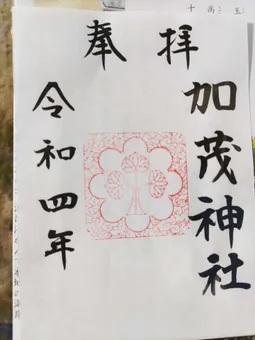 奉拝
加茂神社
令和四年